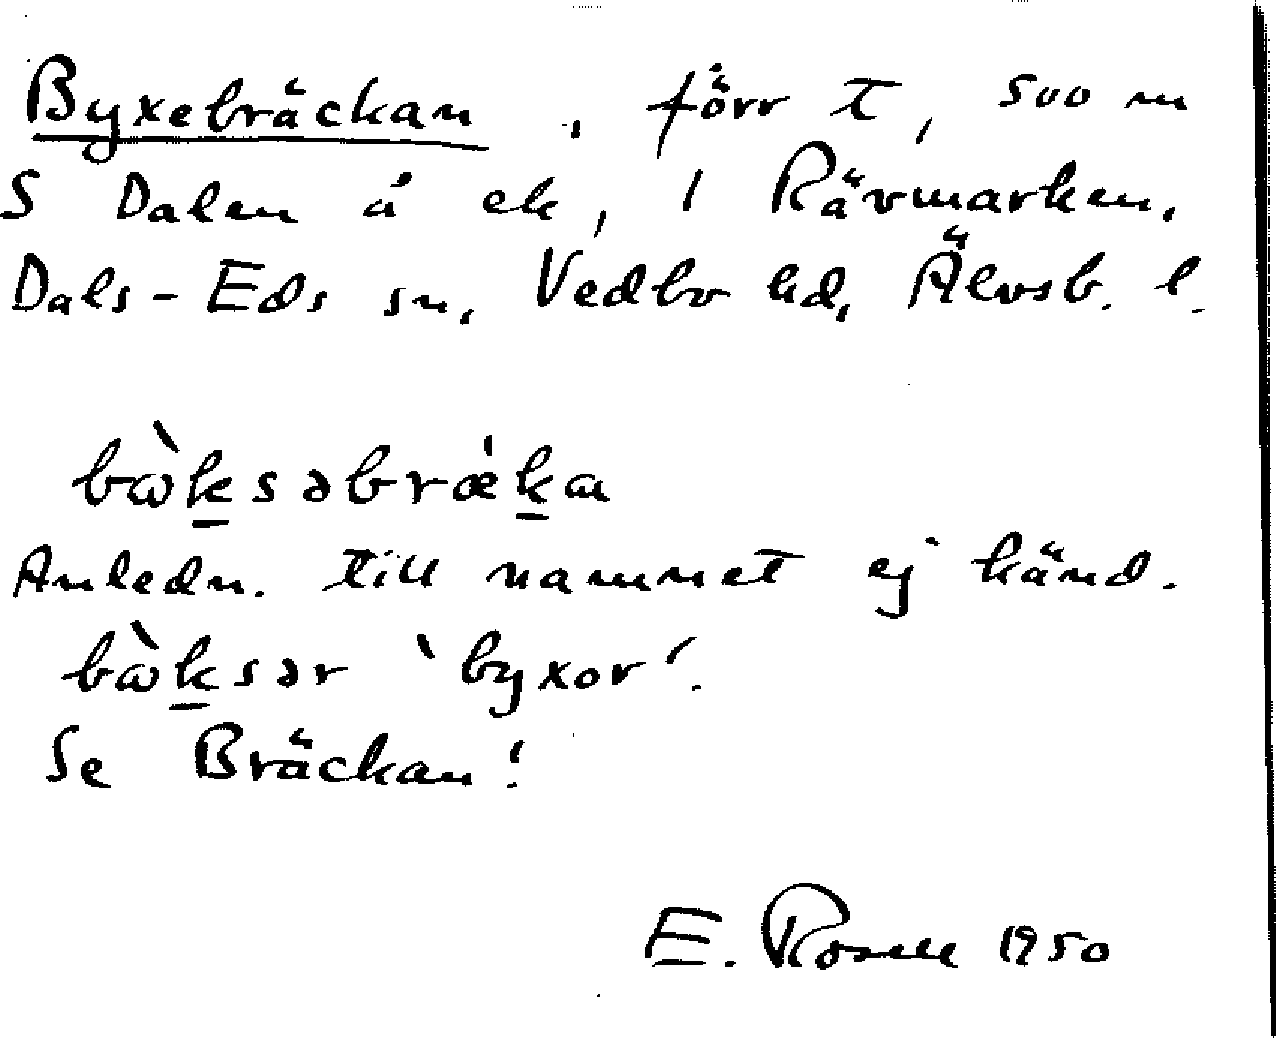 Byxebräckan, förr t, 500 m
S Dalen å ek, i Rävmarken,
Dals-Eds sn, Vedbo hd, Älvsb. l.
bɷ̀ksəbrǽka
Anledn. till namnet ej känd.
bɷ̀ksər ‵byxor′.
Se Bräckan!
E. Rosell 1950